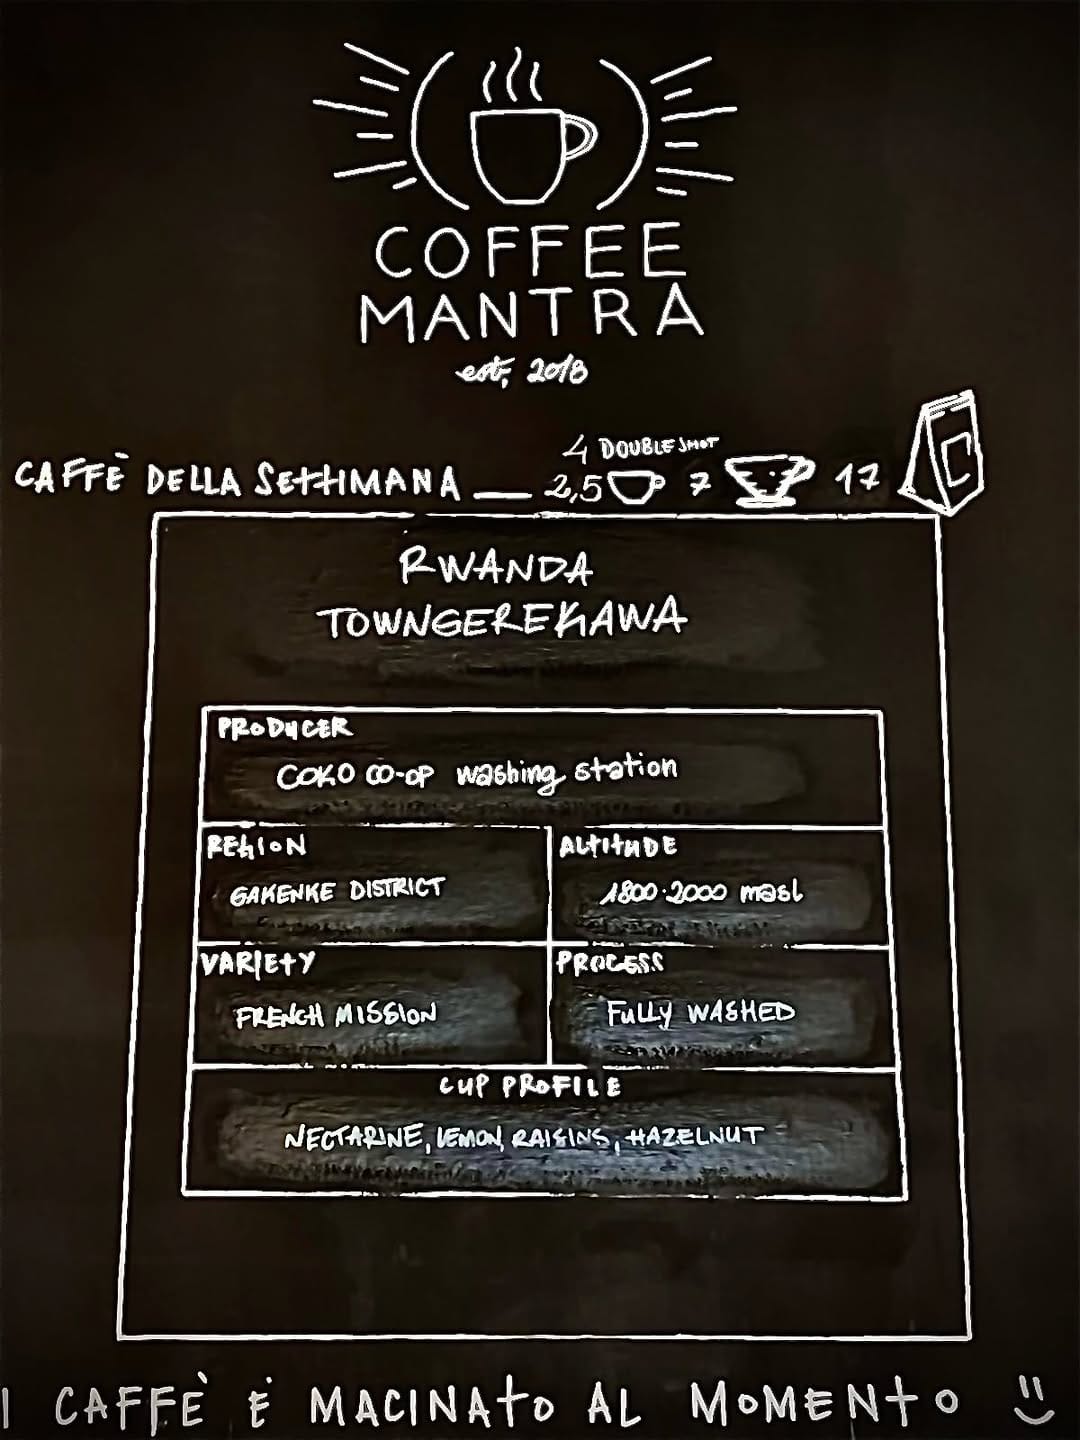 COFFEE
MANTRA
est, 2018
4 DOUBLE SHOT
CAFFÈ DELLA SETTIMANA 2,5 7 17
RWANDA
TOWNGEREKAWA
PRODUCER
COKO CO-OP washing station
REGION
GAKENKE DISTRICT
ALTITUDE
1800-2000 masl
VARIETY
FRENCH MISSION
PROCESS
FULLY WASHED
CUP PROFILE
NECTARINE, LEMON, RAISINS, HAZELNUT
I CAFFÈ È MACINATO AL MOMENTO